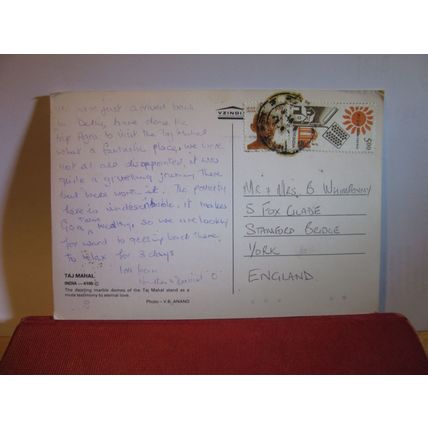 We have just arrived back
in Delhi, have done the
trip Agra to visit the Taj Mahal
what a fantastic place, we were
not at all disappointed, it was
quite a gruelling journey there
but well worth it. The poverty
here is indescribable, it makes
Goa seem wealthy, so we are looking
forward to getting back there
to relax for 3 days
love from
TAJ MAHAL
INDIA — 4105 ©
The dazzling marble domes of the Taj Mahal stand as a
mute testimony to eternal love.
Photo - V.B. ANAND
VEINDI
500
MR & MRS. B WHOMPENNY
5 FOX GLADE
STAMFORD BRIDGE
YORK
ENGLAND